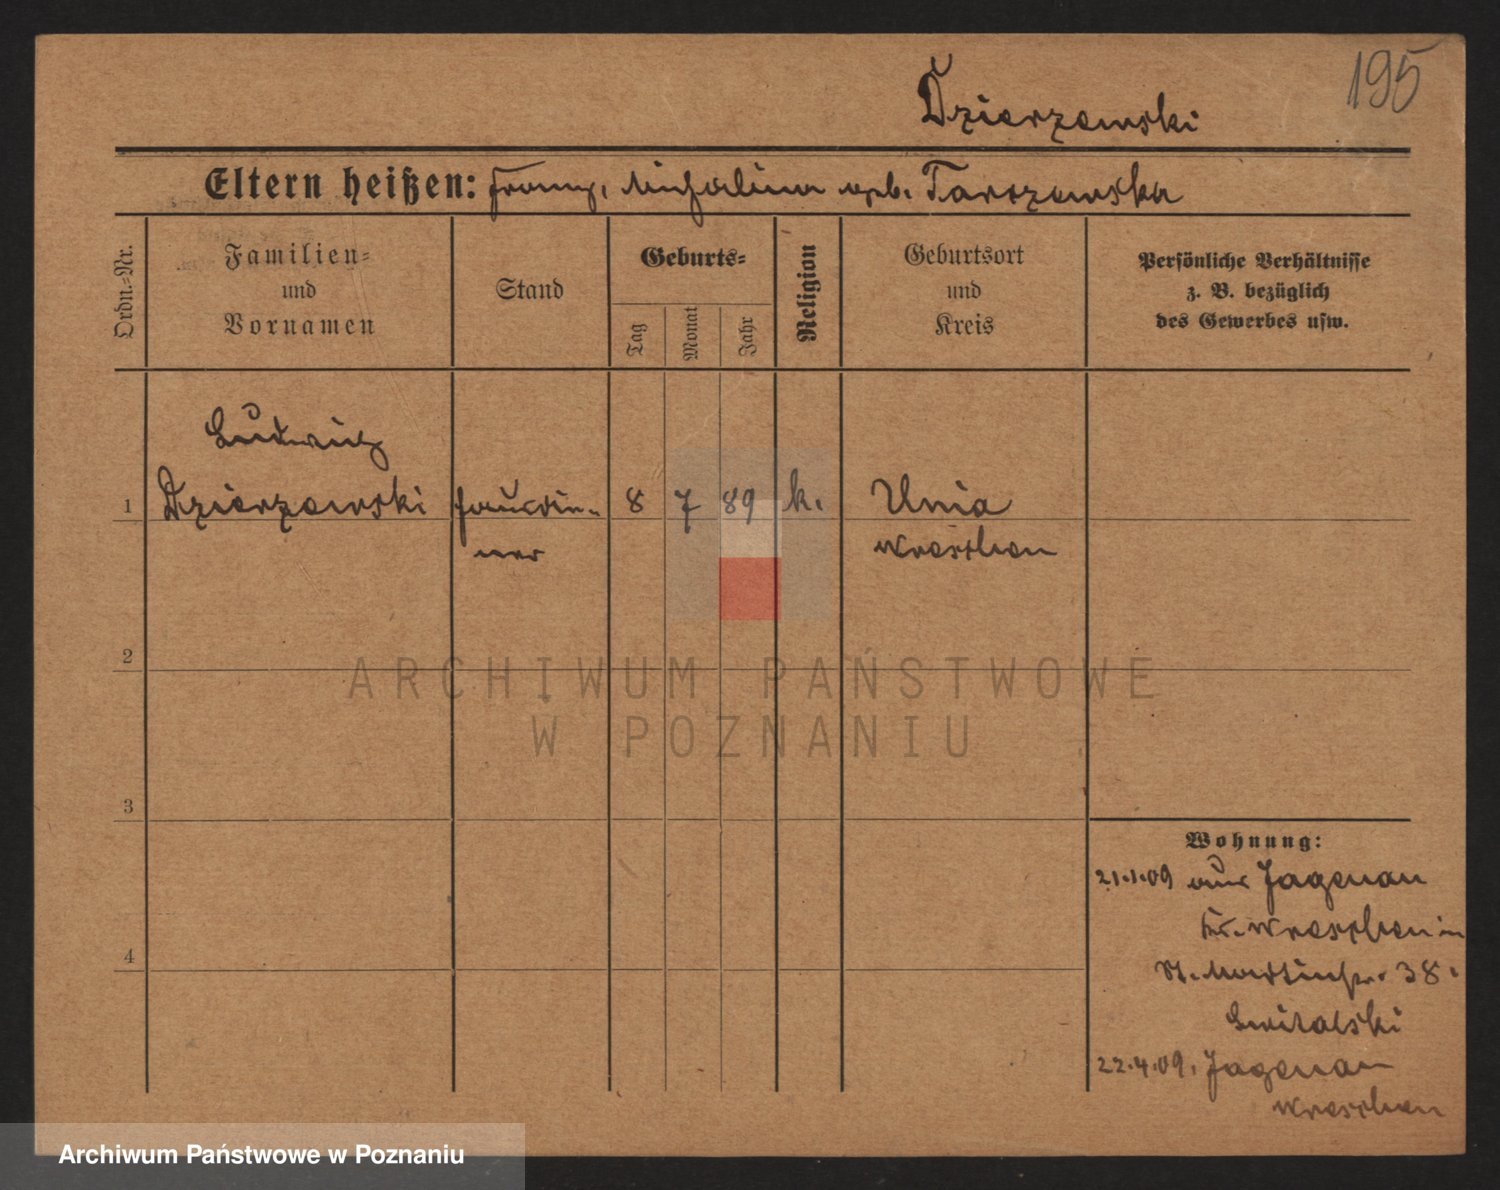 195
Dzierzewski
Eltern heißen: Franz, Michalina geb. Tarczewska
Ordn.-Nr.
Familien-
und
Vornamen
Stand
Geburts-
Tag
Monat
Jahr
Religion
Geburtsort
und
Kreis
Persönliche Verhältnisse
z. B. bezüglich
des Gewerbes usw.
Ludwig
1 Dzierzewski 8 7 89 k. Unia
Wreschen
2
ARCHIWUM PAŃSTWOWE
W POZNANIU
3
Wohnung:
21.1.09 aus Jagenau
Kr. Wreschen in
St. Martinstr. 38.
4
22.4.09. Jagenau
Wreschen
Archiwum Państwowe w Poznaniu